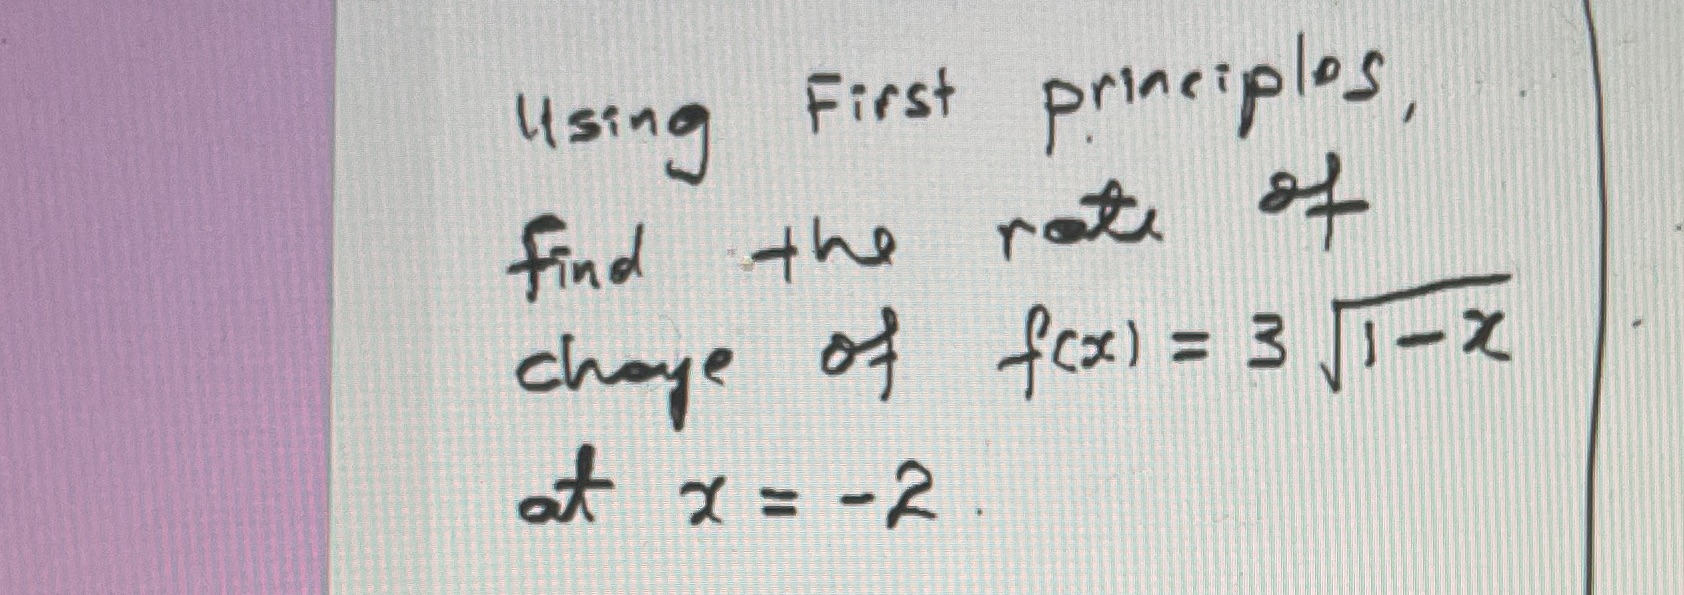 Using First principles,
find the rate of
change of f(x) = 3 √(1-x)
at x = -2.